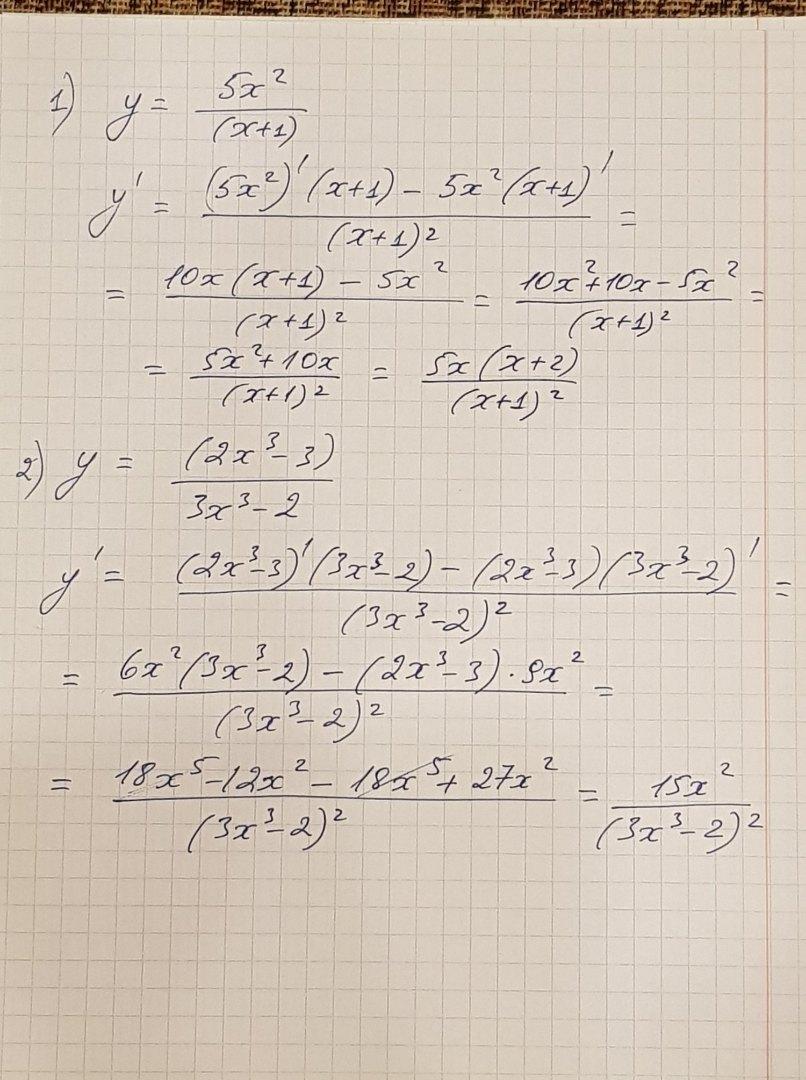 1) y = 5x²/(x+1)
y' = ((5x²)'(x+1) - 5x²(x+1)')/(x+1)² =
= (10x(x+1) - 5x²)/(x+1)² = (10x²+10x-5x²)/(x+1)² =
= (5x²+10x)/(x+1)² = 5x(x+2)/(x+1)²
2) y = (2x³-3)/(3x³-2)
y' = ((2x³-3)'(3x³-2) - (2x³-3)(3x³-2)')/(3x³-2)² =
= (6x²(3x³-2) - (2x³-3)·9x²)/(3x³-2)² =
= (18x⁵-12x² - 18x⁵+27x²)/(3x³-2)² = 15x²/(3x³-2)²